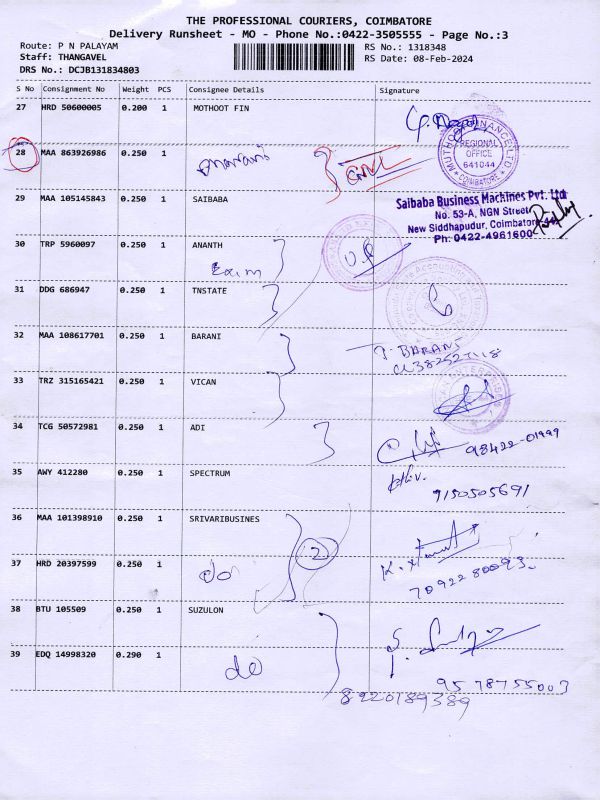 THE PROFESSIONAL COURIERS, COIMBATORE
Delivery Runsheet - MO - Phone No.:0422-3505555 - Page No.:3
Route: P N PALAYAM
RS No.: 1318348
Staff: THANGAVEL
RS Date: 08-Feb-2024
DRS No.: DCJB131834803
S No Consignment No Weight PCS Consignee Details Signature
27 HRD 50600005 0.200 1 MOTHOOT FIN
MUTHOOT FINANCE LTD
REGIONAL
OFFICE
641044
COIMBATORE
28 MAA 863926986 0.250 1
29 MAA 105145843 0.250 1 SAIBABA
Saibaba Business Machines Pvt. Ltd
No. 53-A, NGN Street
New Siddhapudur, Coimbatore
Ph: 0422-4961600
30 TRP 5960097 0.250 1 ANANTH
Exim
31 DDG 686947 0.250 1 TNSTATE
32 MAA 108617701 0.250 1 BARANI
P. BARANI
33 TRZ 315165421 0.250 1 VICAN
34 TCG 50572981 0.250 1 ADI
98422-01999
35 AWY 412280 0.250 1 SPECTRUM
9150505691
36 MAA 101398910 0.250 1 SRIVARIBUSINES
2
37 HRD 20397599 0.250 1
do
7092280093
38 BTU 105509 0.250 1 SUZULON
39 EDQ 14998320 0.290 1
do
9578755003
8920189389